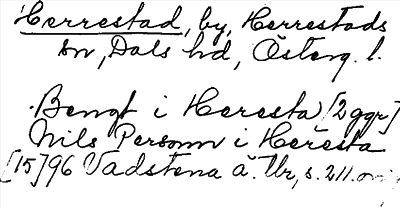 Herrestad, by, Herrestads
sn, Dals hd, Österg. l.
Bengt i Heresta [2 ggr]
Nils Personn i Heresta
[15]96 Vadstena ä. Tb, s. 211.